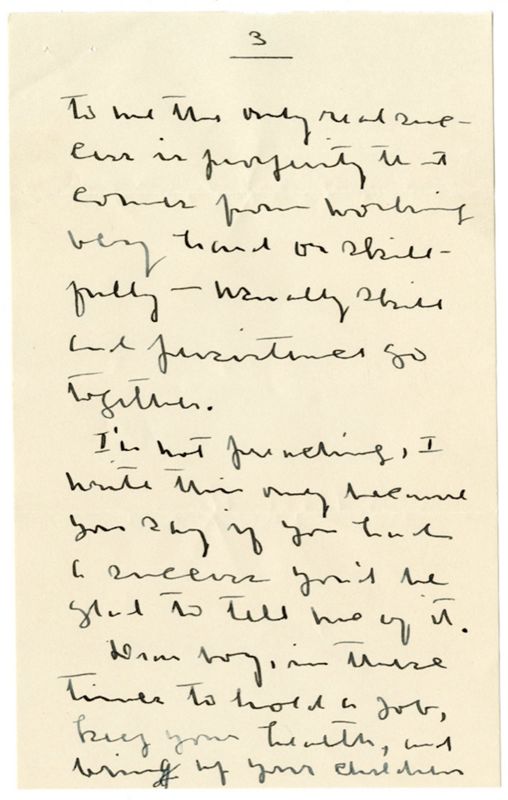 3
to me the only real suc-
cess is prosperity that
comes from working
very hard or skill-
fully — Usually skill
and persistence go
together.
I'm not preaching, I
write this only because
you say if you had
a success you'd be
glad to tell me of it.
Dear boy, in these
times to hold a job,
keep your health, and
bring up your children